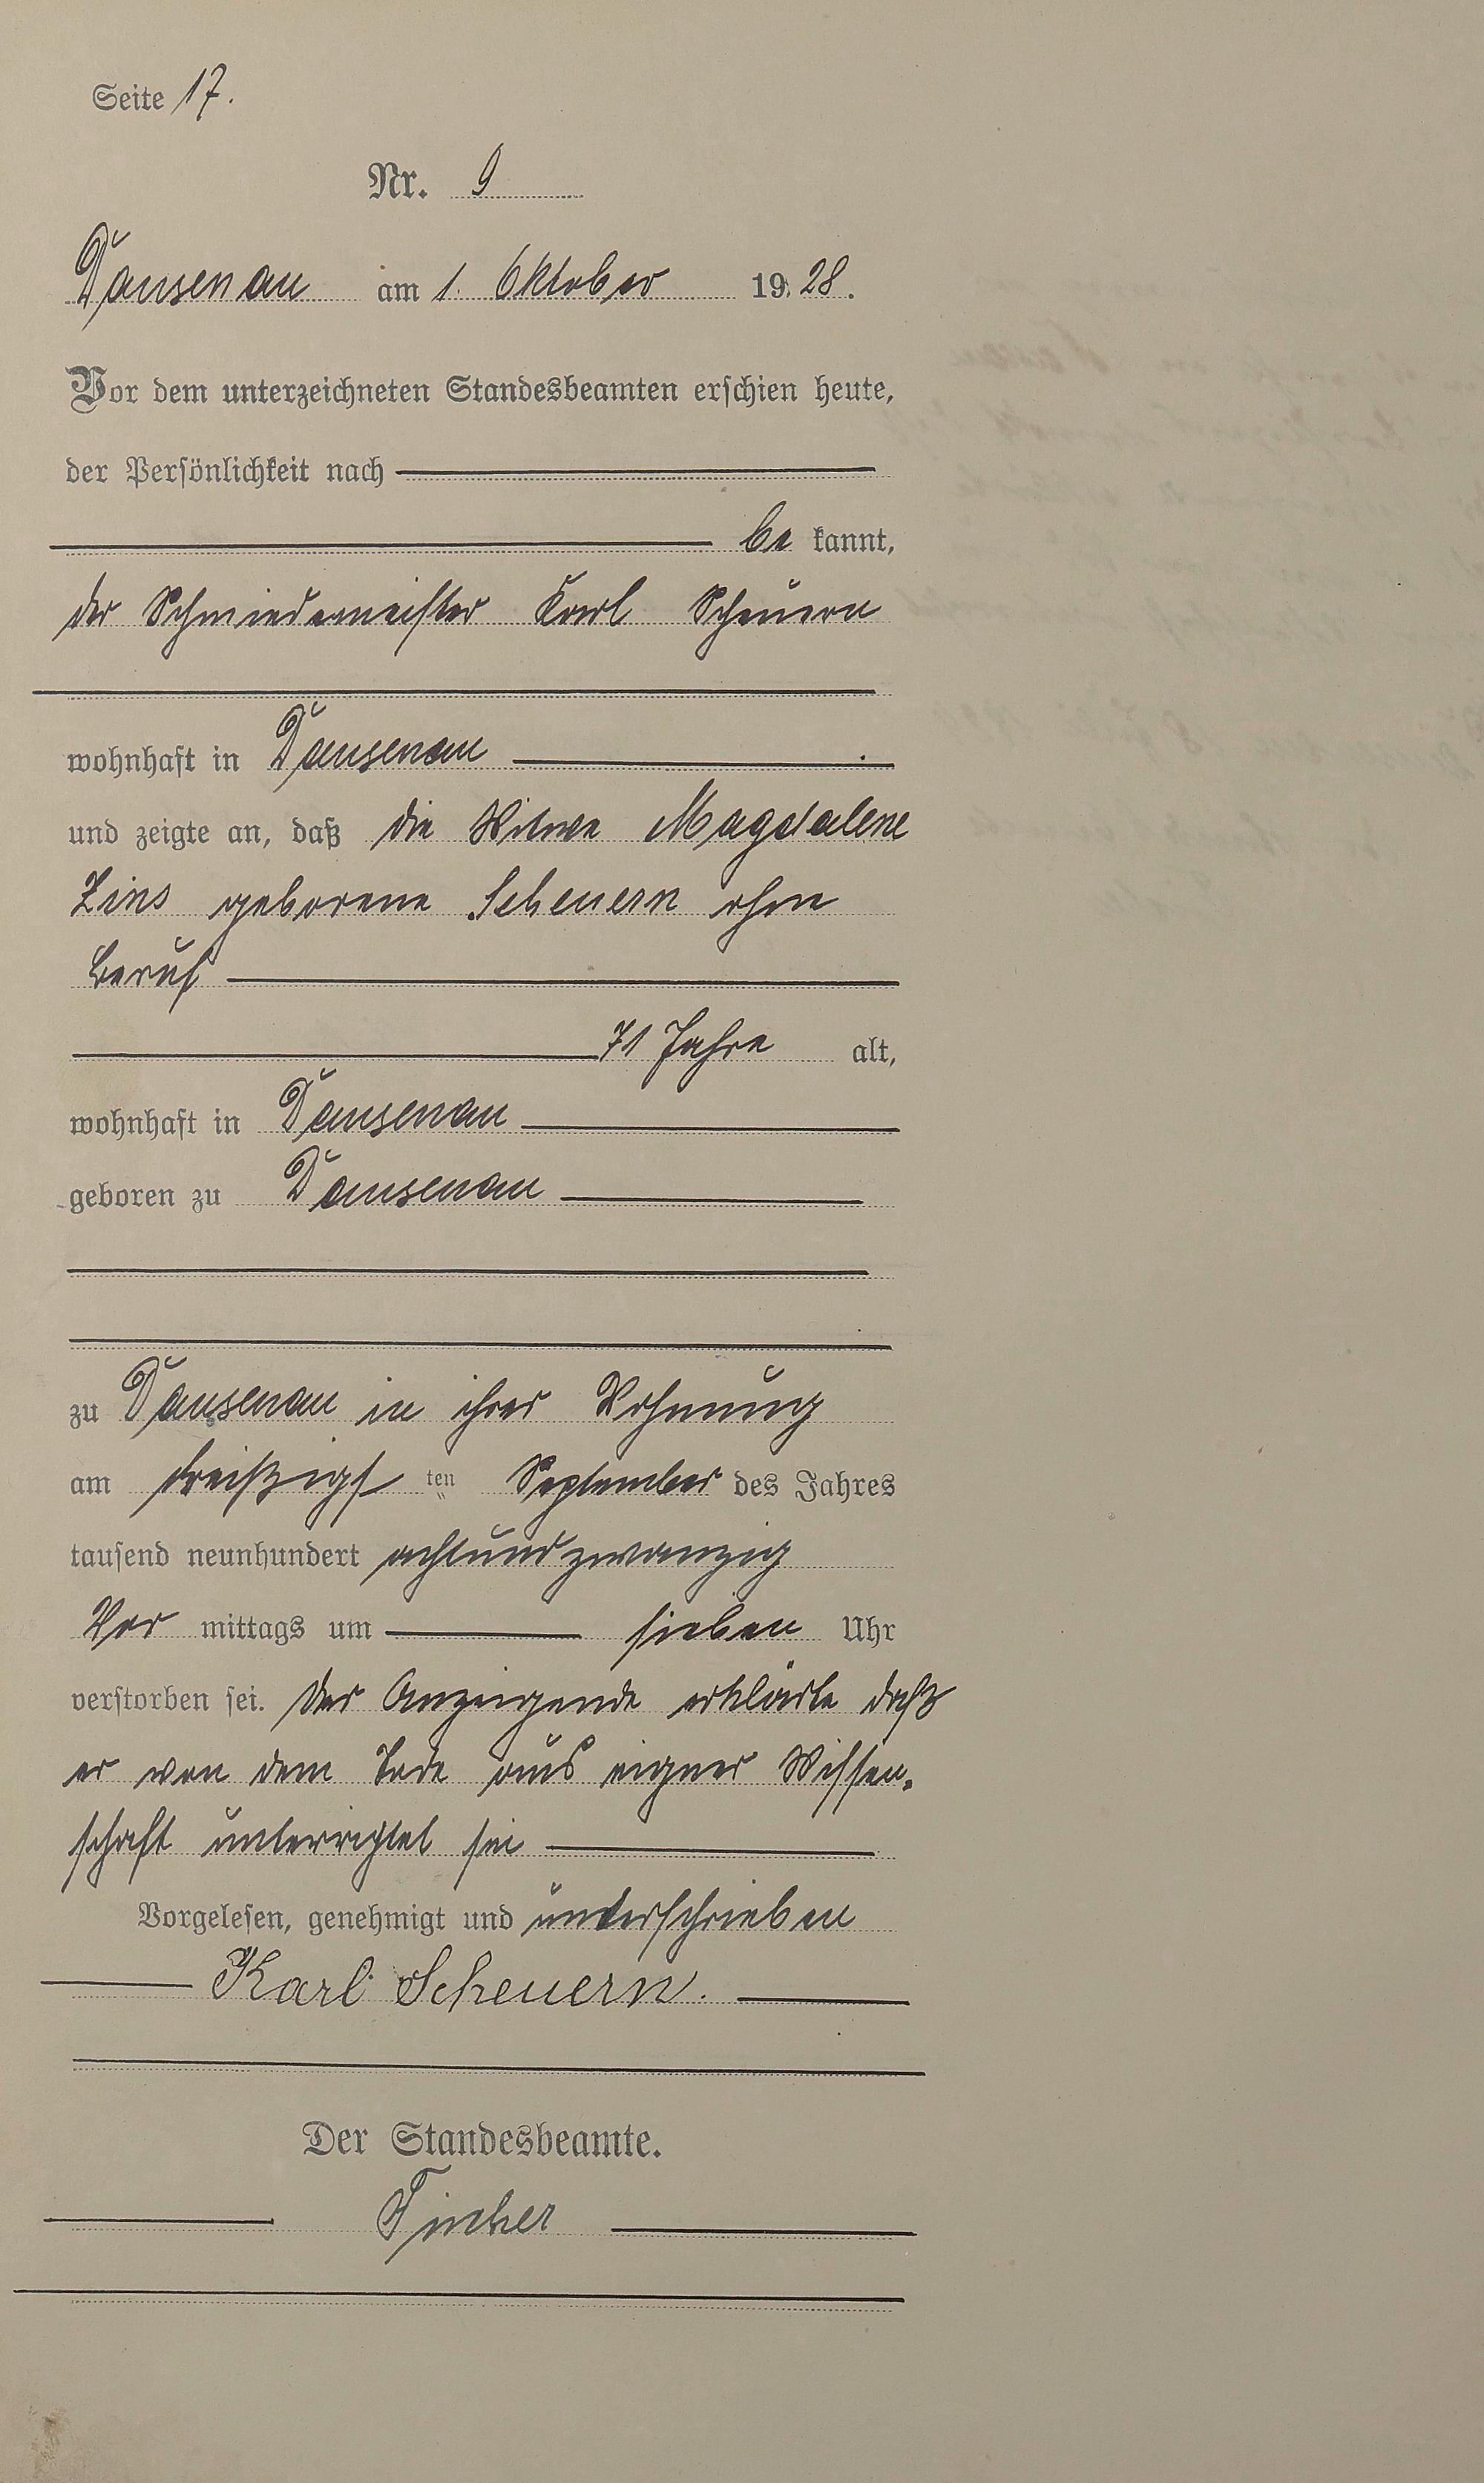 Seite 17.
Nr. 9
Dausenau am 1. Oktober 1928.
Vor dem unterzeichneten Standesbeamten erschien heute,
der Persönlichkeit nach
be kannt,
der Schmiedemeister Karl Scheuern
wohnhaft in Dausenau
und zeigte an, daß die Witwe Magdalene
Zins geborene Scheuern ohne
Beruf
71 Jahre alt,
wohnhaft in Dausenau
geboren zu Dausenau
zu Dausenau in ihrer Wohnung
am dreißigsten September des Jahres
tausend neunhundert achtundzwanzig
Vor mittags um sieben Uhr
verstorben sei. Der Anzeigende erklärte daß
er von dem Tode aus eigner Wissen-
schaft unterrichtet sei
Vorgelesen, genehmigt und unterschrieben
Karl Scheuern.
Der Standesbeamte.